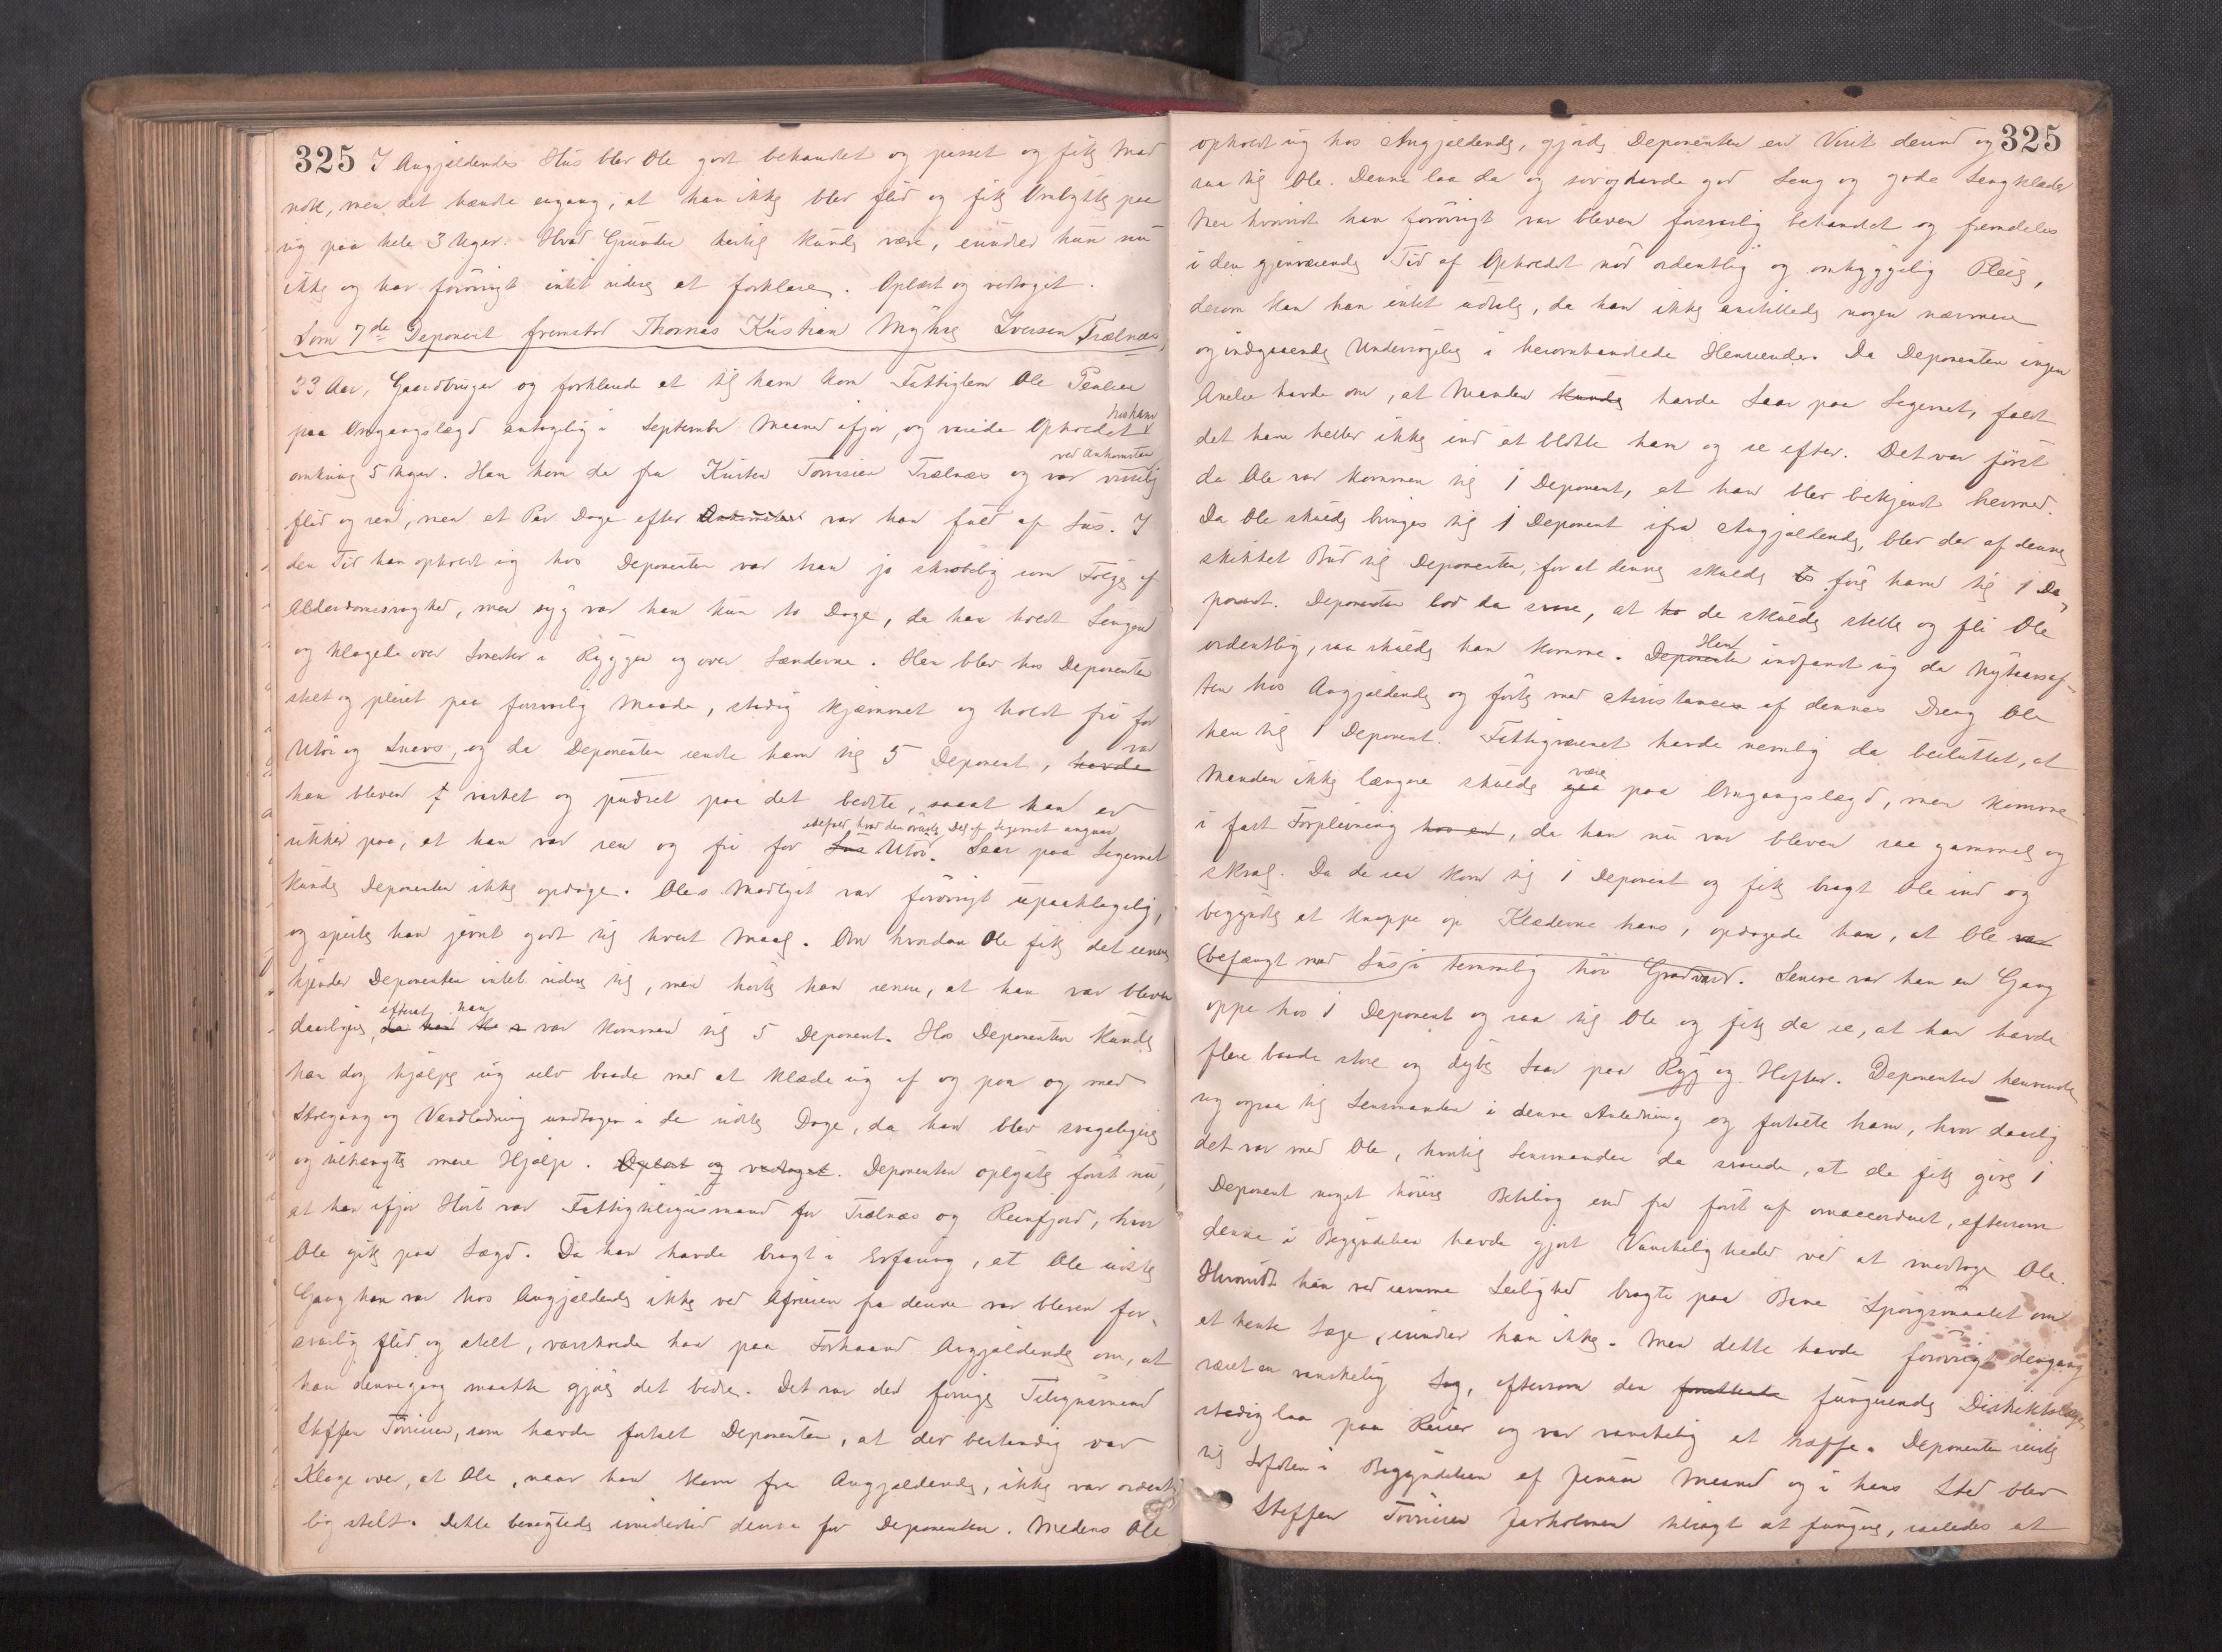 325 I Angjældendes Hus blev Ole godt behandlet og passet og fik Mad
nok, men det hændte engang, at han ikke blev flid og fik Ombytte paa
sig paa hele 3 Uger. Hvad Grunden hertil kunde være, erindrer hun nu
ikke og har forøvrigt intet videre at forklare. Oplæst og vedtaget.
Som 7de Deponent fremstod Thomas Kristian Myhre Iversen Trælnæs,
33 Aar, Gaardbruger og forklarede at til ham kom Fattiglem Ole Paulsen
paa Omgangslægd antagelig i September Maaned ifjor, og varede Opholdet hos ham
omkring 5 Uger. Han kom da fra Kristen Tørrisen Trælnæs og var ved Ankomsten visselig
flid og ren, men et Par Dage efter Ankomsten var han fuld af Lus. I
den Tid han opholdt sig hos Deponenten var han jo skrøbelig som Følge af
Alderdomssvaghed, men syg var han kun to Dage, da han holdt Sengen
og klagede over Smerter i Ryggen og over Lænderne. Han blev hos Deponenten
stelt og pleiet paa forsvarlig Maade, stadig kjæmmet og holdt fri for
Utøi og Snavs, og da Deponenten sendte ham til 5 Deponent, havde var
han bleven f vasket og pudset paa det bedste, saaat han er
sikker paa, at han var ren og fri for Lus Utøi. idetmindste hvad den øvre Del af Legemet angaar Saar paa Legemet
kunde Deponenten ikke opdage. Oles Madlyst var forøvrigt upaaklagelig,
og spiste han jevnt godt til hvert Maal. Om hvordan Ole fik det senere
kjender Deponenten intet videre til, men hørte han senere, at han var bleven
daarligere, da han efterat han var kommen til 5 Deponent. Hos Deponenten kunde
han dog hjælpe sig selv baade med at klæde sig af og paa og med
Stolgang og Vandladning undtagen i de sidste Dage, da han blev svageligere
og tiltrængte mere Hjælp. Oplæst og vedtaget. Deponenten oplyste først nu,
at han ifjor Høst var Fattigtilsynsmand for Trælnæs og Reinfjord, hvor
Ole gik paa Lægd. Da han havde bragt i Erfaring, at Ole sidste
Gang han var hos Angjældende ikke ved Afreisen fra denne var bleven for-
svarlig flid og stelt, varskoede han paa Forhaand Angjældende om, at
han dennegang maatte gjøre det bedre. Det var den forrige Tilsynsmand
Steffen Tørrisen, som havde fortalt Deponenten, at der bestandig var
Klage over, at Ole, naar han kom fra Angjældende, ikke var ordent-
lig stelt. Dette benægtede imidlertid denne for Deponenten. Medens Ole
325
opholdt sig hos Angjældende, gjorde Deponenten en Visit derind og
saa til Ole. Denne laa da og sov og havde god Seng og gode Sengklæder
Men hvorvidt han forøvrigt var bleven forsvarlig behandlet og fremdeles
i den gjenværende Tid af Opholdet nød ordentlig og omhyggelig Pleie,
derom kan han intet udtale, da han ikke anstillede nogen nærmere
og indgaaende Undersøgelse i heromhandlede Henseende. Da Deponenten ingen
Anelse havde om, at Manden kunde havde Saar paa Legemet, faldt
det ham heller ikke ind at blotte ham og se efter. Det var først
da Ole var kommen til 1 Deponent, at han blev bekjendt hermed.
Da Ole skulde bringes til 1 Deponent ifra Angjældende, blev der af denne
skikket Bud til Deponenten, for at denne skulde føre ham til 1 De-
ponent. Deponenten lod da svare, at de skulde stelle og fli Ole
ordentlig, saa skulde han komme. Deponenten Han indfandt sig da Nytaarsaf-
ten hos Angjældende og førte med Assistance af dennes Dreng Ole
hen til 1 Deponent. Fattigvæsenet havde nemlig da besluttet, at
Manden ikke længere skulde gaa være paa Omgangslægd, men komme
i fast Forpleining hos en, da han nu var bleven saa gammel og
skral. Da de saa kom til 1 Deponent og fik bragt Ole ind og
begyndte at knappe op Klæderne hans, opdagede han, at Ole var
befængt med Lus i temmelig høi Grad var. Senere var han en Gang
oppe hos 1 Deponent og saa til Ole og fik da se, at han havde
flere baade store og dybe Saar paa Ryg og Hofter. Deponenten henvendte
sig ogsaa til Lensmanden i denne Anledning og fortalte ham, hvor daarlig
det var med Ole, hvortil Lensmanden da svarede, at de fik give 1
Deponent noget høiere Betaling end fra først af omaccorderet, eftersom
denne i Begyndelsen havde gjort Vanskeligheder ved at modtage Ole.
Hvorvidt han ved samme Leilighed bragte paa Bane Spørgsmaalet om
at hente Læge, erindrer han ikke. Men dette havde forøvrigt dengang
været en vanskelig Sag, eftersom den fungerende Distriktslæge
stadig laa paa Reiser og var vanskelig at træffe. Deponenten reiste
til Lofoten i Begyndelsen af Januar Maaned og i hans Sted blev
Steffen Tørrisen Jarholmen tilsagt at fungere, saaledes at